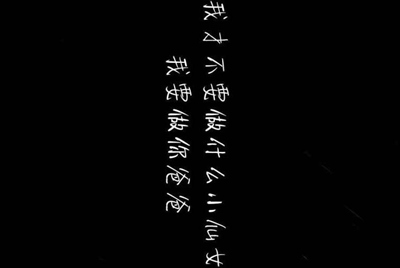 我才不要做什么小仙女
我要做你爸爸